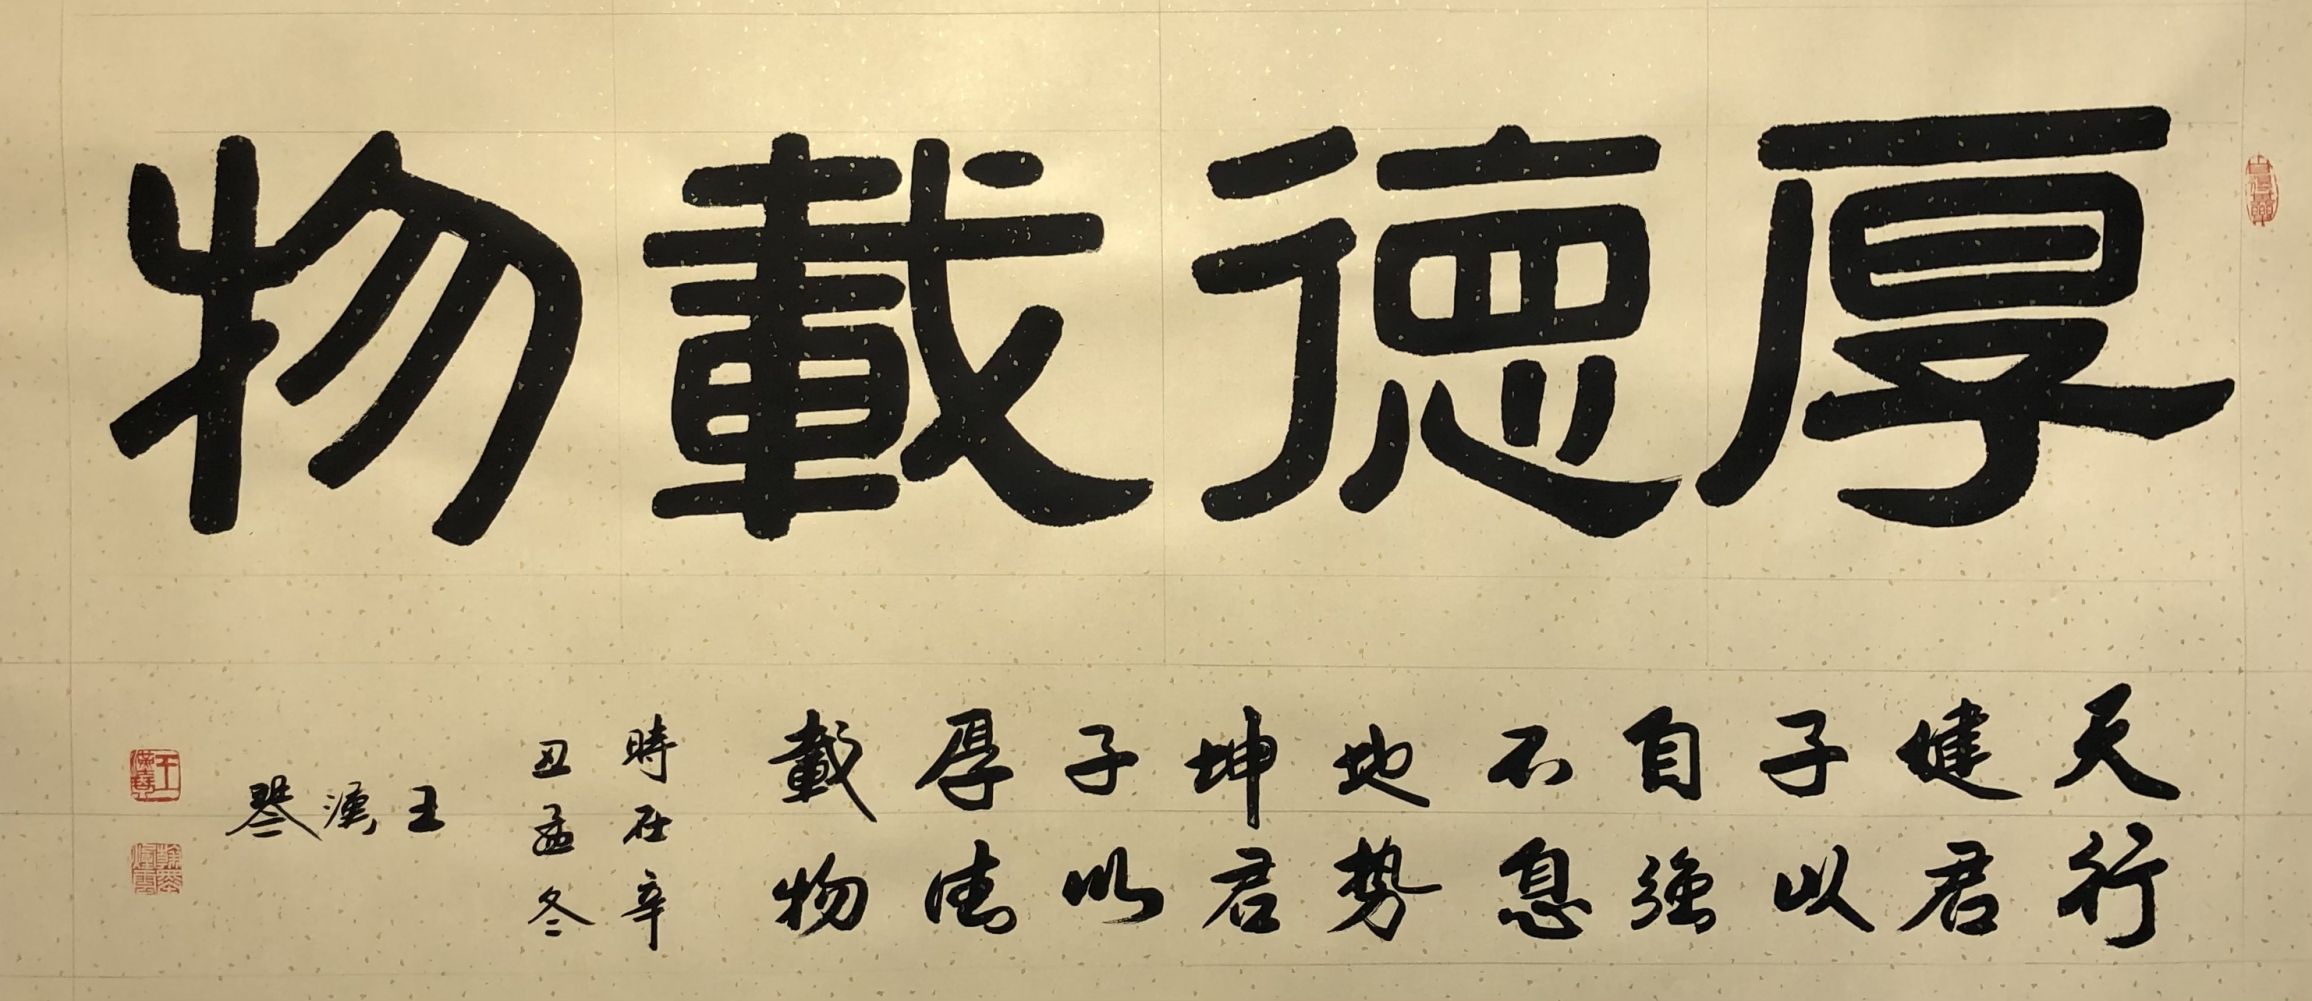 厚德載物
天行
健君
子以
自強
不息
地势
坤君
子以
厚德
載物
時在辛
丑孟冬
王
漢
琴